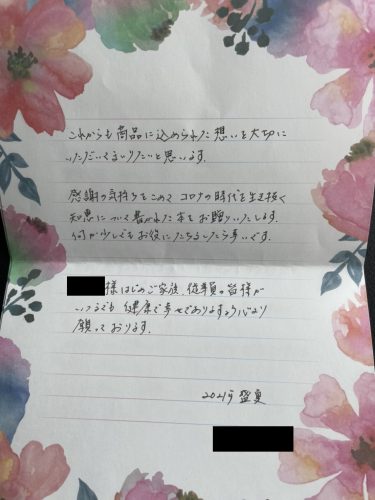 これからも商品に込められた想いを大切に
いただいてまいりたいと思います。
感謝の気持ちをこめて コロナの時代を生き抜く
知恵について書かれた本をお贈りいたします。
何か少しでもお役にたちましたら幸いです。
様はじめご家族、従業員の皆様が
いつまでも健康で幸せでありますよう心より
願っております。
2021年 盛夏